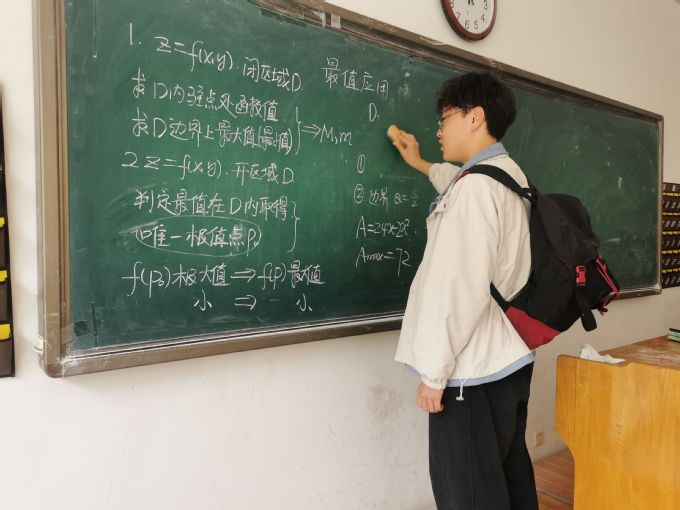 1. z=f(x,y). 闭区域D
求D内驻点处函数值
求D边界上最大值(最小值)
}⇒M,m
2 z=f(x,y). 开区域D
判定最值在D内取得
唯一极值点P₀
f(P₀)极大值⇒f(P₀)最大值
小 ⇒ 小
最值应用
D.
①
② 边界 α=
A=24x-2x².
Amax=72